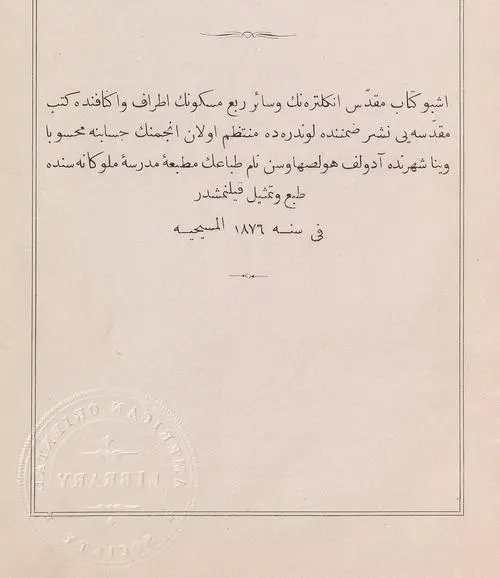 اشبو كتاب مقدّس انكلتره‌نك وسائر ربع مسكونك اطراف واكنافنده كتب
مقدّسه‌يى نشر ضمننده لوندره‌ده منتظم اولان انجمنك حسابنه محسوبا
وينا شهرنده آدولف هولصهاوسن نام طباعك مطبعهٔ مدرسهٔ ملوكانه سنده
طبع وتمثيل قيلنمشدر
فى سنه ١٨٧٦ المسيحيه
AMERICAN ORIENTAL
LIBRARY
SOCIETY